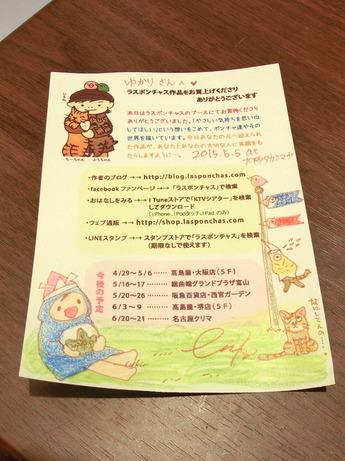 ゆかりさんへ♥
ラスポンチャス作品をお買上げくださり
ありがとうございます
本日はラスポンチャスのブースにてお買物くださり
ありがとうございました。「やさしい気持ちを思い出
してほしい」という想いをこめて、ポンチャ達やその
世界を描いています。今日あなたの元へ迎えられ
た作品が、あなたとあなたの大切な人に笑顔をも
たらしますように…。 2015.5.5 at
・作者のブログ→→http://blog.lasponchas.com
・facebook ファンページ→→「ラスポンチャス」で検索
・おはなしをみる→→iTuneストアで「KTVシアター」を検索
してダウンロード
(iPhone、iPodタッチ、iPad のみ)
・ウェブ通販→→http://shop.lasponchas.com
・LINEスタンプ→→スタンプストアで「ラスポンチャス」を検索
(期限なしで使えます)
今後の予定
4/29〜5/6…… 高島屋・大阪店(5F)
5/16〜17…… 総曲輪グランドプラザ富山
5/20〜26…… 阪急百貨店・西宮ガーデン
6/3〜9…… 高島屋・堺店(5F)
6/20〜21…… 名古屋クリマ